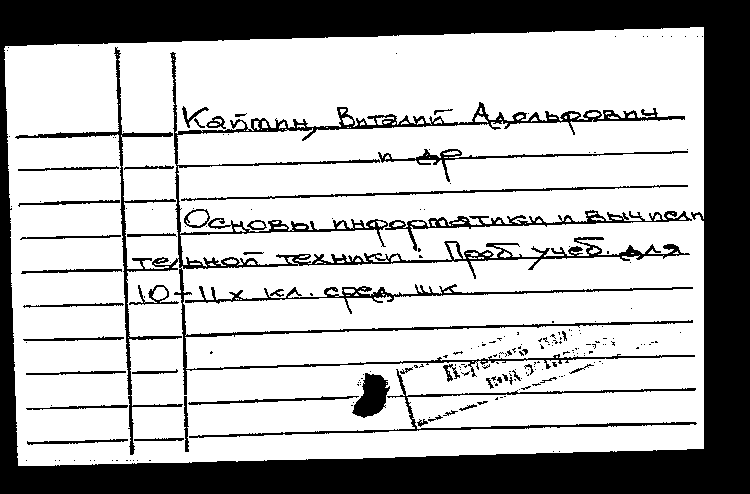 Каймин, Виталий Адольфович
и др.
Основы информатики и вычисли
тельной техники: Проб. учеб. для
10-11х кл. сред. шк